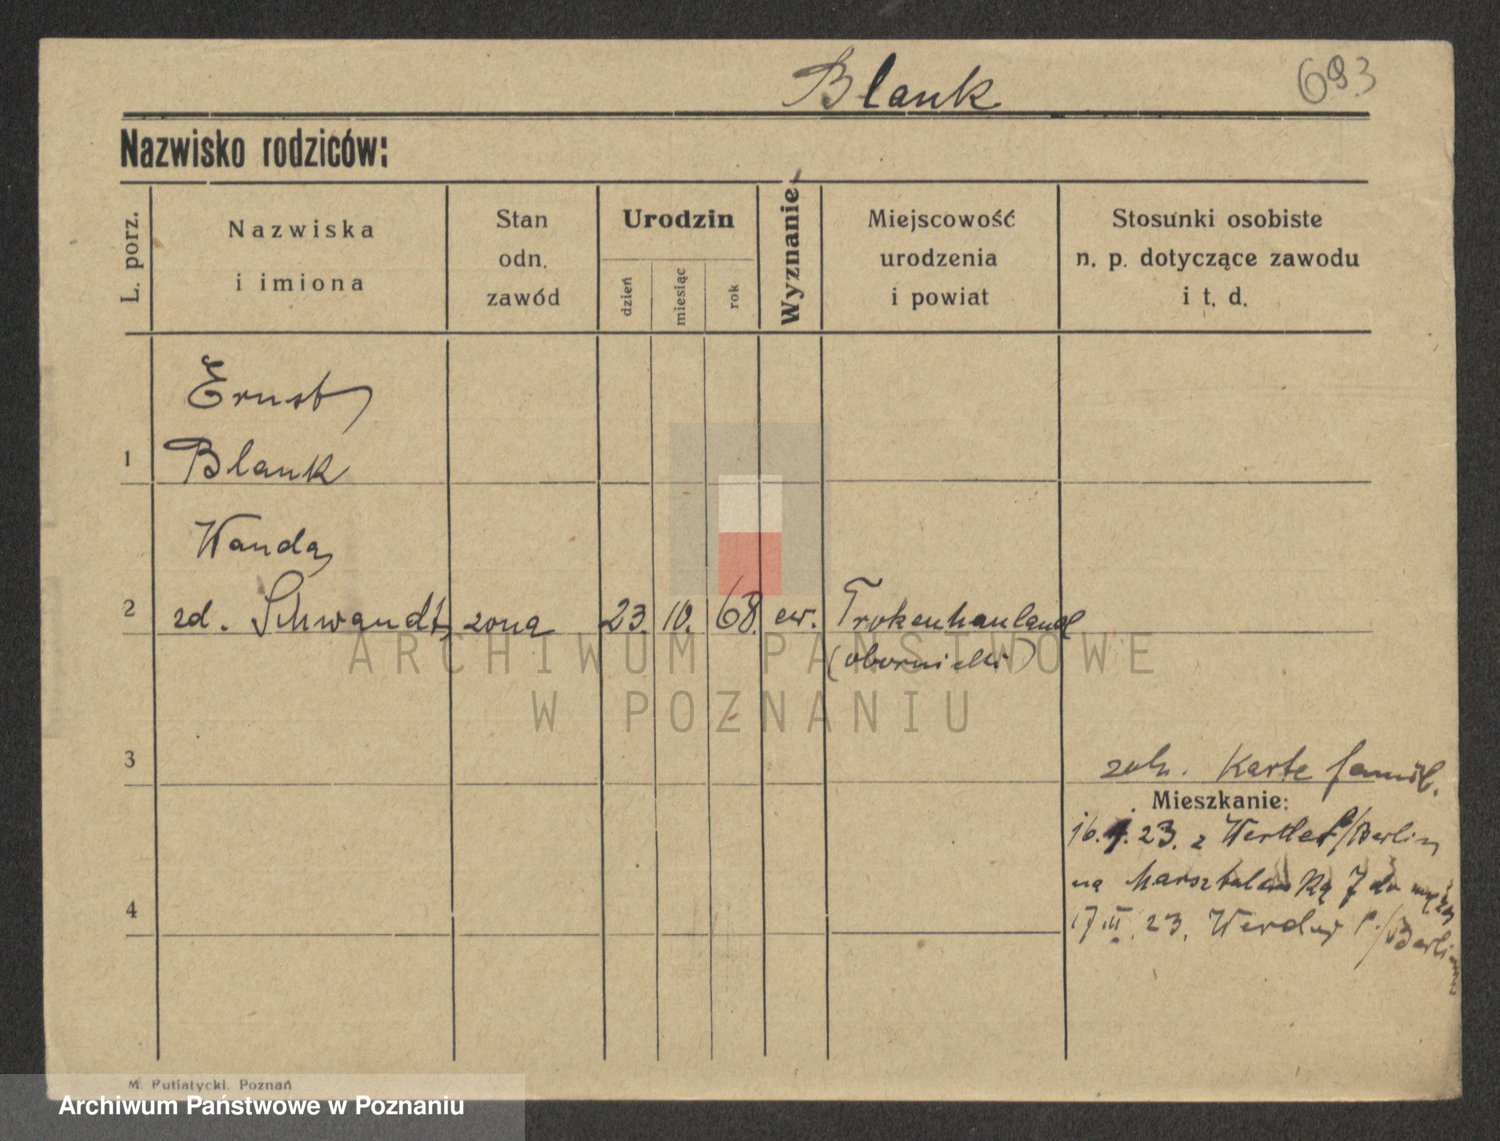 Blank
693
Nazwisko rodziców:
L. porz.
Nazwiska
i imiona
Stan
odn.
zawód
Urodzin
dzień
miesiąc
rok
Wyznanie
Miejscowość
urodzenia
i powiat
Stosunki osobiste
n. p. dotyczące zawodu
i t. d.
Ernst
1 Blank
Wanda
2 zd. Schwandt żona 23. 10. 68. ew. Trokenhauland
(obornicki)
3
zob. Karte famil.
Mieszkanie:
16. 23. z Werder P/Berlin
na Marsztalarską 7 do męża
4
17 III. 23. Werder P./Berlin
ARCHIWUM PAŃSTWOWE
W POZNANIU
M. Putiatycki. Poznań
Archiwum Państwowe w Poznaniu